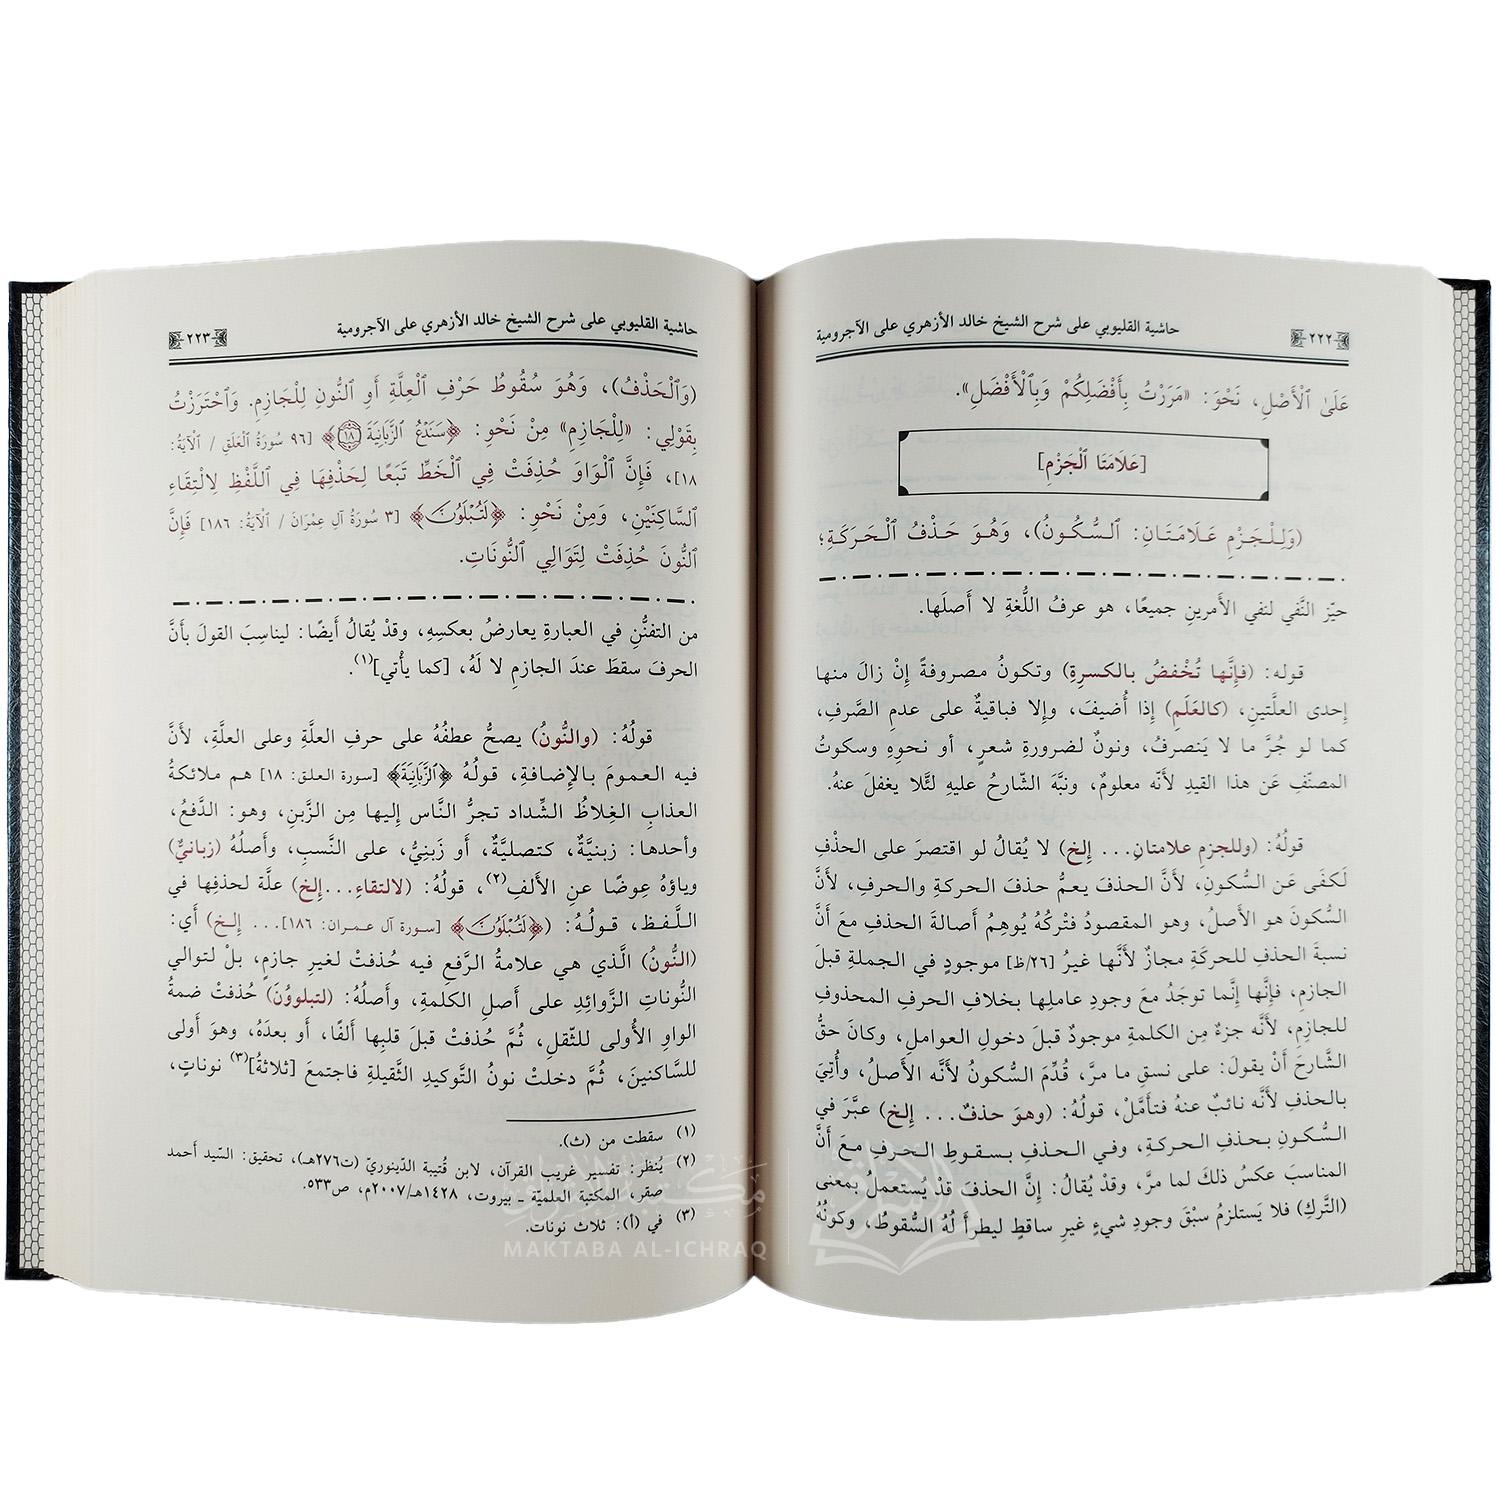 ٢٢٢ حاشية القليوبي على شرح الشيخ خالد الأزهري على الآجرومية
عَلَىٰ ٱلْأَصْلِ، نَحْوَ: «مَرَرْتُ بِأَفْضَلِكُمْ وَبِٱلْأَفْضَلِ».
[عَلَامَتَا ٱلْجَزْمِ]
(وَلِلْجَزْمِ عَلَامَتَانِ: ٱلسُّكُونُ)، وَهُوَ حَذْفُ ٱلْحَرَكَةِ؛
حيّز النَّفي لنفي الأَمرينِ جميعًا، هو عرفُ اللُّغةِ لا أَصلَها.
قوله: (فإِنَّها تُخْفضُ بالكسرةِ) وتكونُ مصروفةً إنْ زالَ منها
إحدى العلَّتينِ، (كالعَلَمِ) إذا أُضيفَ، وإلا فباقيةٌ على عدمِ الصَّرفِ،
كما لو جُرَّ ما لا يَنصرفُ، ونونٌ لضرورةِ شعرٍ، أو نحوِهِ وسكوتُ
المصنّفِ عَن هذا القيدِ لأنّه معلومٌ، ونبَّهَ الشّارحُ عليهِ لئَلّا يغفلَ عنهُ.
قولُهُ: (وللجزمِ علامتانِ... إلخ) لا يُقالُ لو اقتصرَ على الحذفِ
لكَفَى عَن السُّكونِ، لأنَّ الحذفَ يعمُّ حذفَ الحركةِ والحرفِ، لأَنَّ
السُّكونَ هو الأَصلُ، وهو المقصودُ فتْركُهُ يُوهِمُ أصالةَ الحذفِ معَ أَنَّ
نسبةَ الحذفِ للحركةِ مجازٌ لأَنَّها غيرُ [٢٦/ظ] موجودٍ في الجملةِ قبلَ
الجازمِ، فإِنَّها إِنَّما توجَدُ معَ وجودِ عاملِها بخلافِ الحرفِ المحذوفِ
للجازمِ، لأَنّه جزءٌ مِن الكلمةِ موجودٌ قبلَ دخولِ العواملِ، وكانَ حقُّ
الشَّارحَ أَنْ يقولَ: على نسقِ ما مرَّ، قُدِّمَ السُّكونُ لأنَّه الأَصلُ، وأُتِيَ
بالحذفِ لأَنَّه نائبٌ عنهُ فتأمَّلْ، قولُهُ: (وهوَ حذفٌ... إلخ) عبَّرَ في
السُّكونِ بحذفِ الحركةِ، وفي الحذفِ بسقوطِ الحرفِ معَ أَنَّ
المناسبَ عكسُ ذلكَ لما مرَّ، وقدْ يُقالُ: إِنَّ الحذفَ قدْ يُستعملُ بمعنى
(التَّركِ) فلا يَستلزمُ سبْقَ وجودِ شيءٍ غيرِ ساقطٍ ليطرأَ لهُ السُّقوطُ، وكونُهُ
حاشية القليوبي على شرح الشيخ خالد الأزهري على الآجرومية ٢٢٣
(وَٱلْحَذْفُ)، وَهُوَ سُقُوطُ حَرْفِ ٱلْعِلَّةِ أَوِ ٱلنُّونِ لِلْجَازِمِ. وَٱحْتَرَزْتُ
بِقَوْلِي: «لِلْجَازِمِ» مِنْ نَحْوِ: ﴿سَنَدْعُ ٱلزَّبَانِيَةَ ۝١٨﴾ [٩٦ سُورَةُ ٱلْعَلَقِ / ٱلْآيَةُ:
١٨]، فَإِنَّ ٱلْوَاوَ حُذِفَتْ فِي ٱلْخَطِّ تَبَعًا لِحَذْفِهَا فِي ٱللَّفْظِ لِالْتِقَاءِ
ٱلسَّاكِنَيْنِ، وَمِنْ نَحْوِ: ﴿لَتُبْلَوُنَّ﴾ [٣ سُورَةُ آلِ عِمْرَانَ / ٱلْآيَةُ: ١٨٦] فَإِنَّ
ٱلنُّونَ حُذِفَتْ لِتَوَالِي ٱلنُّونَاتِ.
من التفنُّنِ في العبارةِ يعارضُ بعكسِهِ، وقدْ يُقالُ أَيضًا: ليناسِبَ القولَ بأنَّ
الحرفَ سقطَ عندَ الجازمِ لا لَهُ، [كما يأْتي](١).
قولُهُ: (والنُّونُ) يصحُّ عطفُهُ على حرفِ العلةِ وعلى العلةِ، لأَنَّ
فيه العمومَ بالإضافةِ، قولُهُ ﴿ٱلزَّبَانِيَةَ﴾ [سورة العلق: ١٨] هم ملائكةُ
العذابِ الغِلاظُ الشِّداد تجرُّ الناسَ إليها مِن الزَّبنِ، وهو: الدَّفعُ،
وأحدها: زبنيَّةٌ، كتصليةٌ، أو زَبنِيُّ، على النَّسبِ، وأَصلُهُ (زبانيٌّ)
وياؤهُ عِوضًا عنِ الأَلفِ(٢)، قولُهُ: (لالتقاءِ...إلخ) علَّة لحذفِها في
اللَّفظ، قولُهُ: (﴿لَتُبْلَوُنَّ﴾ [سورة آل عمران: ١٨٦]... إلخ) أي:
(النُّونُ) الَّذي هي علامةُ الرَّفعِ فيه حُذفتْ لغيرِ جازمٍ، بلْ لتوالي
النُّوناتِ الزَّوائِدِ على أَصلِ الكلمةِ، وأَصلُهُ: (لتبلووُنَ) حُذفتْ ضمةُ
الواوِ الأُولى للثّقلِ، ثُمَّ حُذفتْ قبلَ قلبِها أَلفًا، أو بعدَهُ، وهوَ أَولى
للسَّاكنينَ، ثُمَّ دخلتْ نونُ التَّوكيدِ الثَّقيلةِ فاجتمعَ [ثلاثةُ](٣) نوناتٍ،
(١) سقطت من (ث).
(٢) يُنظر: تفسير غريب القرآن، لابن قُتيبة الدِّينوريّ (ت٢٧٦هـ)، تحقيق: السّيد أحمد
صقر، المكتبة العلميّة ـ بيروت، ١٤٢٨هـ/٢٠٠٧م، ص٥٣٣.
(٣) في (أ): ثلاث نونات.
مكتبة الإشراق
MAKTABA AL-ICHRAQ